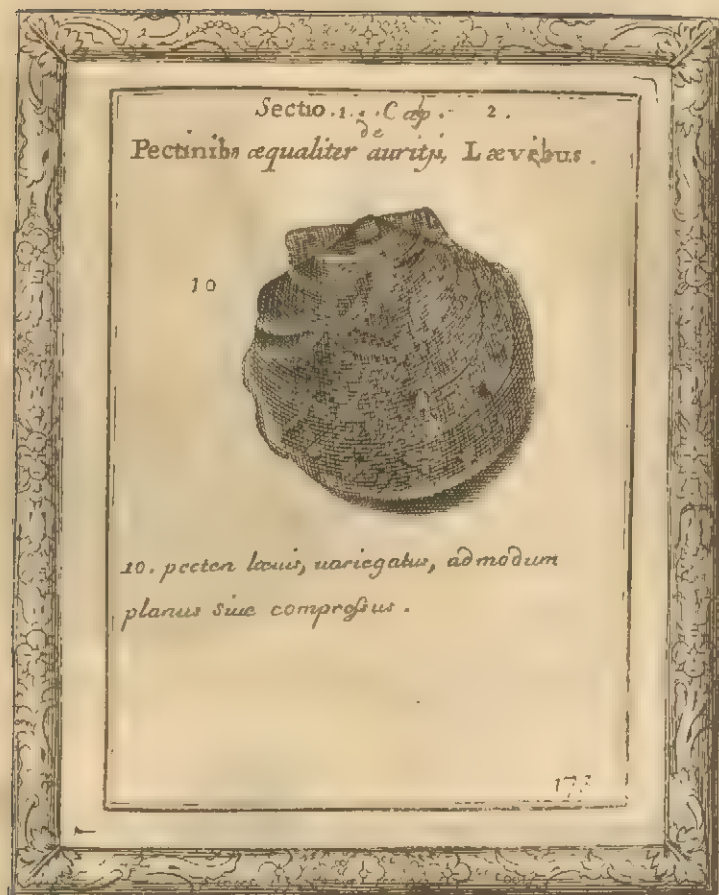 Sectio .1. . Cap . 2 .
de
Pectinibs æqualiter auritis, Lævibus .
10
10. pecten lævis, variegatus, admodum
planus sive compressus .